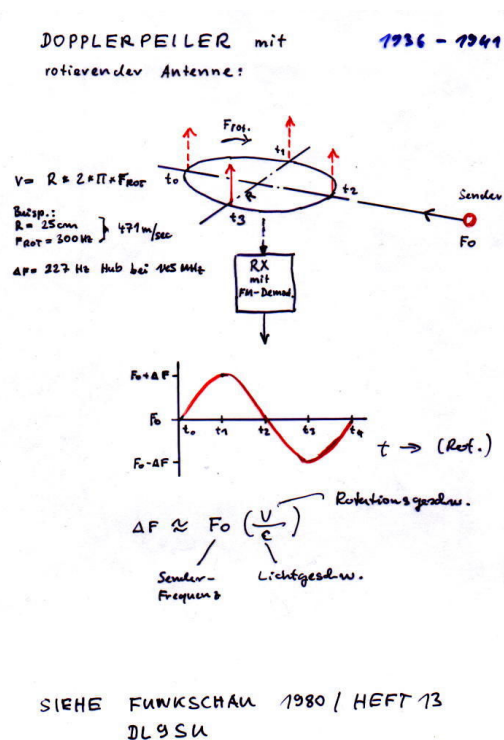 DOPPLERPEILER mit 1936 - 1941
rotierender Antenne:
FROT.
t0 t1 t2 t3 R
V = R * 2 * π * FROT
Beisp.:
R = 25cm
FROT = 300 Hz } 471 m/sec
ΔF = 227 Hz Hub bei 145 MHz
Sender
F0
RX
mit
FM-Demod.
F0+ΔF
F0
F0-ΔF
t0 t1 t2 t3 t4
t → (Rot.)
Rotationsgeschw.
ΔF ≈ F0 (V/c)
Sender-
Frequenz
Lichtgeschw.
SIEHE FUNKSCHAU 1980 / HEFT 13
DL9SU